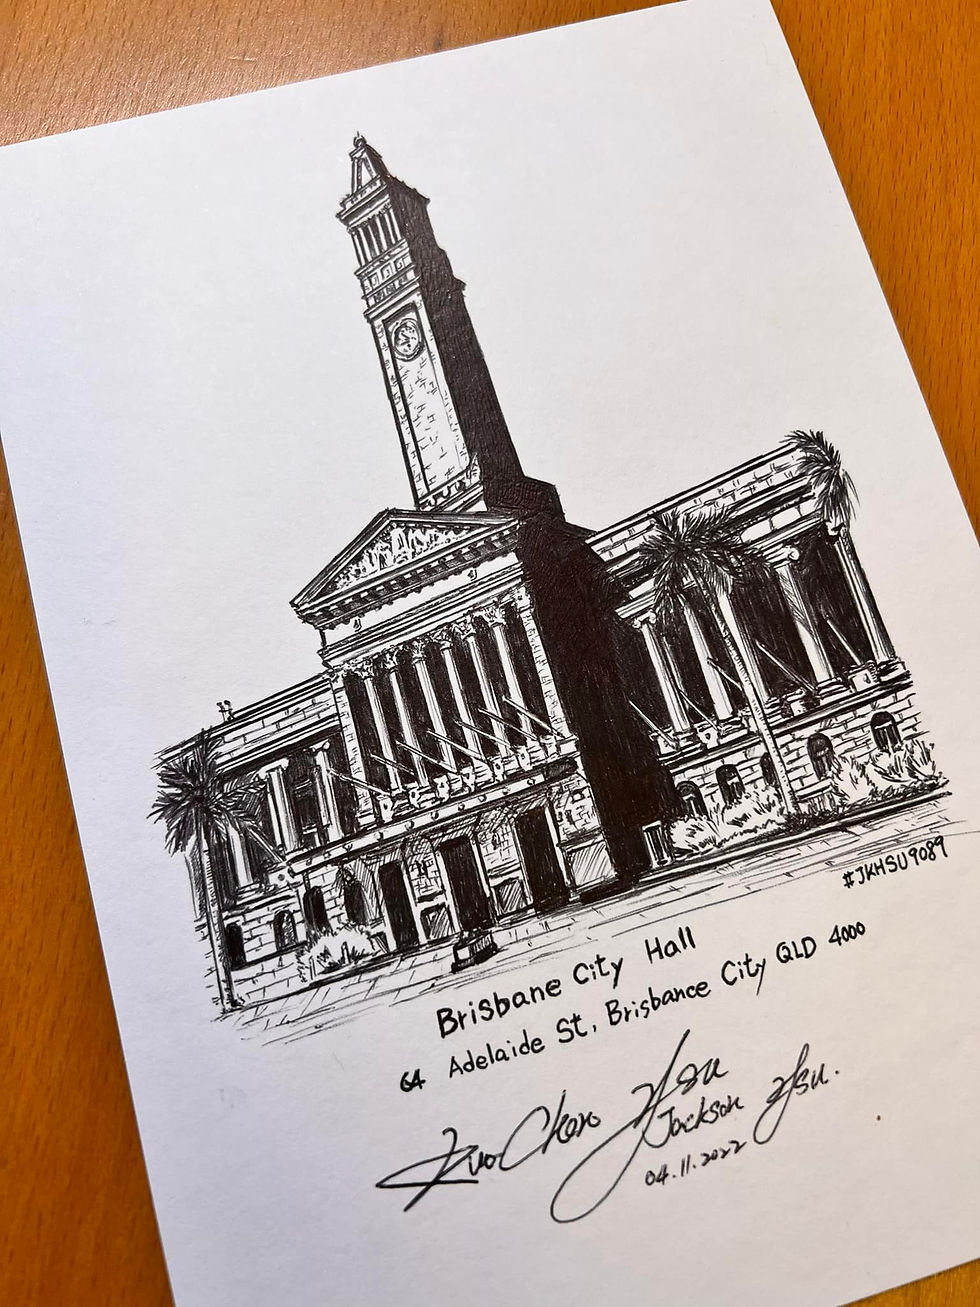 #JKHSU9089
Brisbane City Hall
64 Adelaide St, Brisbance City QLD 4000
KuoChen Hsu
Jackson Hsu.
04.11.2022